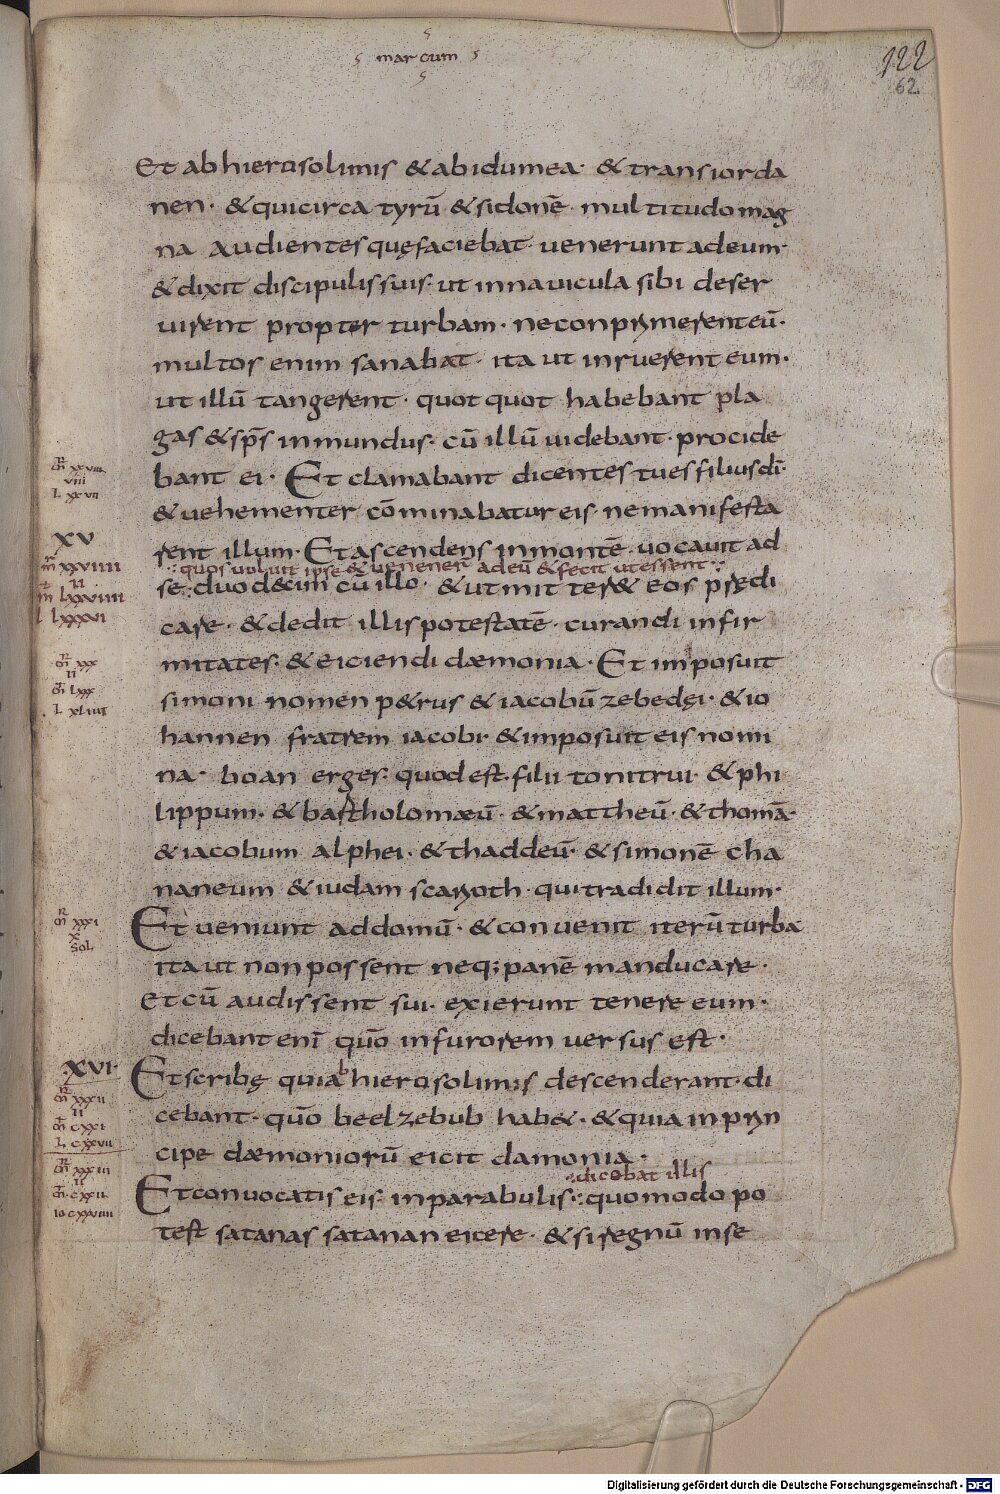 marcum
122
62
Et ab hierosolimis & ab idumea · & transiorda
nen · & qui circa tyrū & sidonē · multitudo mag
na audientes quę faciebat · uenerunt ad eum ·
& dixit discipulis suis · ut in nauicula sibi deser
uirent propter turbam · ne conprimerent eū ·
multos enim sanabat · ita ut inruerent eum ·
ut illū tangerent · quotquot habebant pla
gas & sp̄s inmundus · cū illū uidebant · procide
bant ei · Et clamabant dicentes tu es filius dī ·
& uehementer cōminabatur eis · ne manifesta
rent illum · Et ascendens in montē uocauit ad
quos uoluit ipse & uenener̄ ad eū & fecit ut essent
se duodecim cū illo · & ut mitteret eos prędi
care · & dedit illis potestatē · curandi infir
mitates · & eiciendi dæmonia · Et imposuit
simoni nomen p&rus & iacobū zebedęi · & io
hannen fratrem iacobi · & imposuit eis nomi
na · boanerges · quod est · filii tonitrui · & phi
lippum · & bartholomæū · & mattheū · & thomā ·
& iacobum alphei · & thaddeū · & simonē cha
naneum & iudam scarioth · qui tradidit illum ·
Et ueniunt ad domū · & conuenit iterū turba
ita ut non possent neq; panē manducare ·
Et cū audissent sui · exierunt tenere eum ·
dicebant enī quō in furorem uersus est ·
Et scribę qui ab hierosolimis descenderant · di
cebant · quō beelzebub hab& · & quia in prin
cipe dæmoniorū eicit damonia ·
dicebat illis
Et conuocatis eis · in parabulis · quomodo po
test satanas satanan eicere · & si regnū in se
XV
XVI
Digitalisierung gefördert durch die Deutsche Forschungsgemeinschaft - DFG